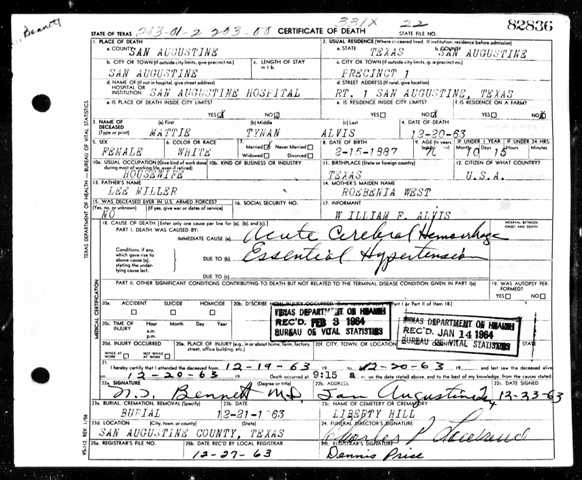 Beauty
STATE OF TEXAS 203-01-2 203-00 CERTIFICATE OF DEATH 331X 22 STATE FILE NO. 82836
TEXAS DEPARTMENT OF HEALTH — BUREAU OF VITAL STATISTICS
1. PLACE OF DEATH 2. USUAL RESIDENCE (Where deceased lived. If institution: residence before admission)
a. COUNTY SAN AUGUSTINE a. STATE TEXAS b. COUNTY SAN AUGUSTINE
b. CITY OR TOWN (If outside city limits, give precinct no.) c. LENGTH OF STAY in 1 b. c. CITY OR TOWN (If outside city limits, give precinct no.)
SAN AUGUSTINE PRECINCT 1
d. NAME OF (If not in hospital, give street address) HOSPITAL OR INSTITUTION SAN AUGUSTINE HOSPITAL d. STREET ADDRESS (If rural, give location) RT. 1 SAN AUGUSTINE, TEXAS
e. IS PLACE OF DEATH INSIDE CITY LIMITS? YES NO e. IS RESIDENCE INSIDE CITY LIMITS? YES NO f. IS RESIDENCE ON A FARM? YES NO
3. NAME OF DECEASED (Type or print) (a) First (b) Middle (c) Last 4. DATE OF DEATH
MATTIE TYNAN ALVIS 12-20-63
5. SEX 6. COLOR OR RACE 7. Married Never Married Widowed Divorced 8. DATE OF BIRTH 9. AGE IF UNDER 1 YEAR Months Days IF UNDER 24 HRS. Hours Min.
FEMALE WHITE 2-15-1887 10 15
10a. USUAL OCCUPATION (Give kind of work done during most of working life, even if retired) 10b. KIND OF BUSINESS OR INDUSTRY 11. BIRTHPLACE (State or foreign country) 12. CITIZEN OF WHAT COUNTRY?
HOUSEWIFE TEXAS U.S.A.
13. FATHER'S NAME 14. MOTHER'S MAIDEN NAME
LEE MILLER ROEBENIA WEST
15. WAS DECEASED EVER IN U.S. ARMED FORCES? (Yes, no or unknown) (If yes, give war or dates of service) 16. SOCIAL SECURITY NO. 17. INFORMANT
NO WILLIAM F. ALVIS
18. CAUSE OF DEATH [Enter only one cause per line for (a), (b), and (c).] INTERVAL BETWEEN ONSET AND DEATH
PART I. DEATH WAS CAUSED BY: IMMEDIATE CAUSE (a) Acute Cerebral Hemorrhage
Conditions, if any, which gave rise to above cause (a), stating the underlying cause last. DUE TO (b) Essential Hypertension
DUE TO (c)
PART II. OTHER SIGNIFICANT CONDITIONS CONTRIBUTING TO DEATH BUT NOT RELATED TO THE TERMINAL DISEASE CONDITION GIVEN IN PART I (a) 19. WAS AUTOPSY PERFORMED? YES NO
MEDICAL CERTIFICATION
20a. ACCIDENT SUICIDE HOMICIDE 20b. DESCRIBE HOW INJURY OCCURRED
20c. TIME OF INJURY Hour Month Day Year a.m. p.m.
TEXAS DEPARTMENT OF HEALTH REC'D. FEB 3 1964 BUREAU OF VITAL STATISTICS
TEXAS DEPARTMENT OF HEALTH REC'D. JAN 14 1964 BUREAU OF VITAL STATISTICS
20d. INJURY OCCURRED WHILE AT WORK NOT WHILE AT WORK 20e. PLACE OF INJURY (e.g., in or about home, farm, factory, street, office building, etc.) 20f. CITY, TOWN, OR LOCATION
21. I hereby certify that I attended the deceased from 12-19-63 to 12-20-63, and last saw the deceased alive
on 12-20-63 Death occurred at 9:15 a m. on the date stated above, and to the best of my knowledge, from the causes stated.
22a. SIGNATURE (Degree or title) 22b. ADDRESS 22c. DATE SIGNED
Bennett M.D. San Augustine 12-23-63
23a. BURIAL, CREMATION, REMOVAL (Specify) 23b. DATE 23c. NAME OF CEMETERY OR CREMATORY
BURIAL 12-21-1963 LIBERTY HILL
23d. LOCATION (City, town, or county) (State) 24. FUNERAL DIRECTOR'S SIGNATURE
SAN AUGUSTINE COUNTY, TEXAS
25a. REGISTRAR'S FILE NO. 25b. DATE REC'D BY LOCAL REGISTRAR 25c. REGISTRAR'S SIGNATURE
12-27-63 Dennis Price